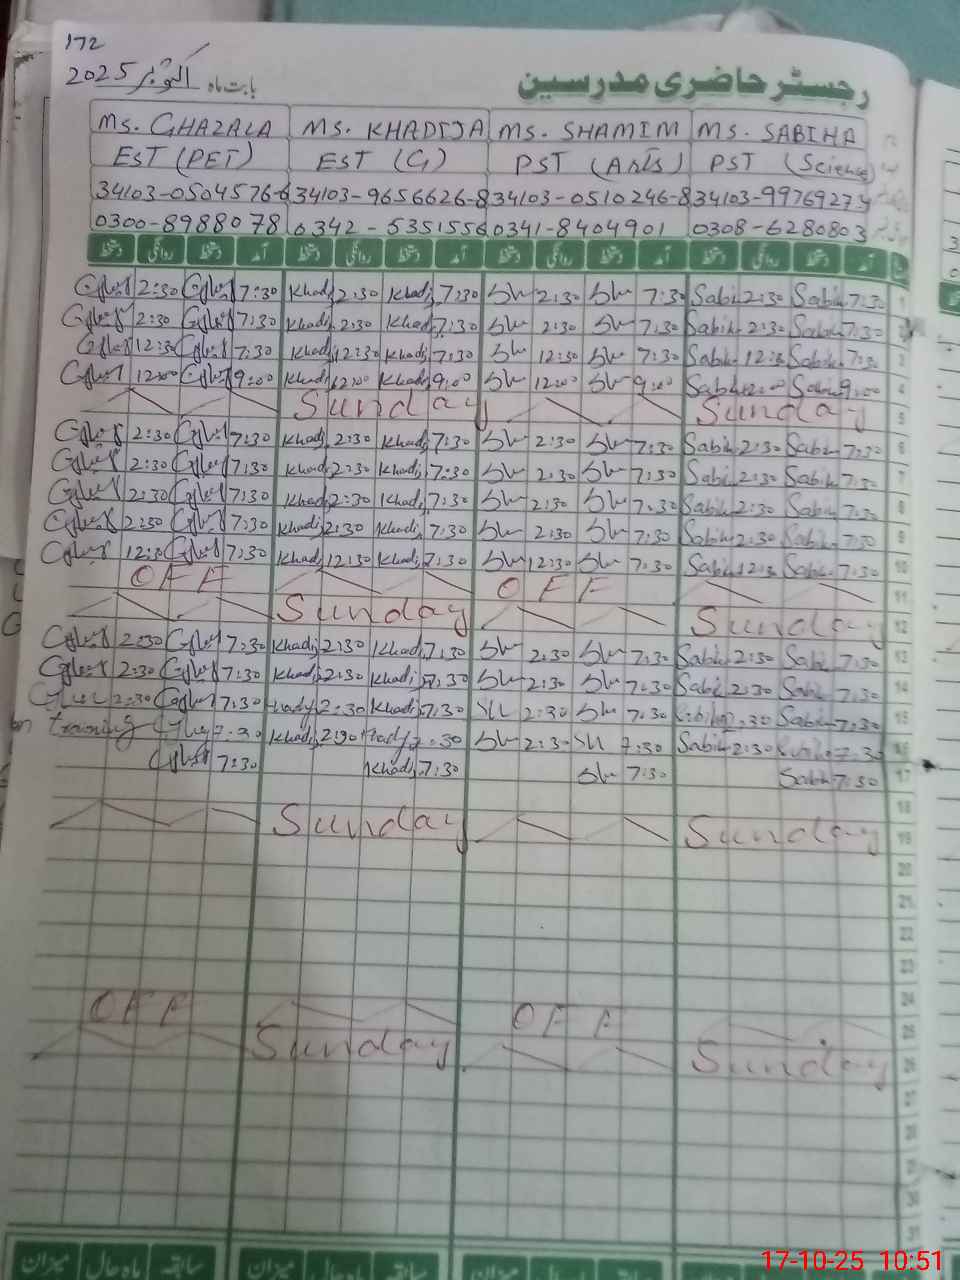 172
رجسٹر حاضری مدرسین بابت ماہ اکتوبر 2025
Ms. GHAZALA Ms. KHADIJA Ms. SHAMIM Ms. SABIHA
EST (PET) EST (G) PST (Arts) PST (Science)
34103-0504576-6 34103-9656626-8 34103-0510246-8 34103-9976927
0300-8988078 0342-6351556 0341-8404901 0308-6280803
دستخط روانگی دستخط آمد دستخط روانگی دستخط آمد دستخط روانگی دستخط آمد دستخط روانگی دستخط آمد
2:30 7:30 Khadij 2:30 Khadij 7:30 Sh 2:30 Sh 7:30 Sabih 2:30 Sabih 7:30 1
2:30 7:30 Khadij 2:30 Khadij 7:30 Sh 2:30 Sh 7:30 Sabih 2:30 Sabih 7:30 2
12:30 7:30 Khadij 12:30 Khadij 7:30 Sh 12:30 Sh 7:30 Sabih 12:30 Sabih 7:30 3
12:00 9:00 Khadij 12:00 Khadij 9:00 Sh 12:00 Sh 9:00 Sabih 12:00 Sabih 9:00 4
Sunday Sunday 5
2:30 7:30 Khadij 2:30 Khadij 7:30 Sh 2:30 Sh 7:30 Sabih 2:30 Sabih 7:30 6
2:30 7:30 Khadij 2:30 Khadij 7:30 Sh 2:30 Sh 7:30 Sabih 2:30 Sabih 7:30 7
2:30 7:30 Khadij 2:30 Khadij 7:30 Sh 2:30 Sh 7:30 Sabih 2:30 Sabih 7:30 8
2:30 7:30 Khadij 2:30 Khadij 7:30 Sh 2:30 Sh 7:30 Sabih 2:30 Sabih 7:30 9
12:30 7:30 Khadij 12:30 Khadij 7:30 Sh 12:30 Sh 7:30 Sabih 12:30 Sabih 7:30 10
OFF OFF 11
Sunday Sunday 12
2:30 7:30 Khadij 2:30 Khadij 7:30 Sh 2:30 Sh 7:30 Sabih 2:30 Sabih 7:30 13
2:30 7:30 Khadij 2:30 Khadij 7:30 Sh 2:30 Sh 7:30 Sabih 2:30 Sabih 7:30 14
2:30 7:30 Khadij 2:30 Khadij 7:30 Sh 2:30 Sh 7:30 Sabih 2:30 Sabih 7:30 15
on training 7:30 Khadij 2:30 Khadij 7:30 Sh 2:30 Sh 7:30 Sabih 2:30 Sabih 7:30 16
7:30 Khadij 7:30 Sh 7:30 Sabih 7:30 17
18
Sunday Sunday 19
20
21
22
23
24
OFF OFF 25
Sunday Sunday 26
27
28
29
30
31
سابقہ ماہ حال میزان سابقہ ماہ حال میزان سابقہ ماہ حال میزان سابقہ ماہ حال میزان
17-10-25 10:51